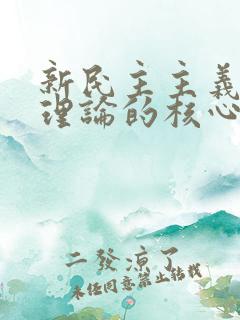 新民主主義
理論的核心
二發涼了
未经同意禁止转载